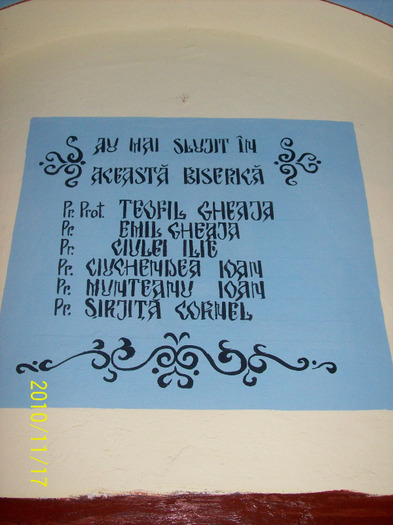 AU MAI SLUJIT ÎN
ACEASTĂ BISERICĂ
Pr. Prot. TEOFIL GHEAJA
Pr. EMIL GHEAJA
Pr. CIULEI ILIE
Pr. CIUCHENDEA IOAN
Pr. MUNTEANU IOAN
Pr. SIRJIȚĂ CORNEL
2010/11/17